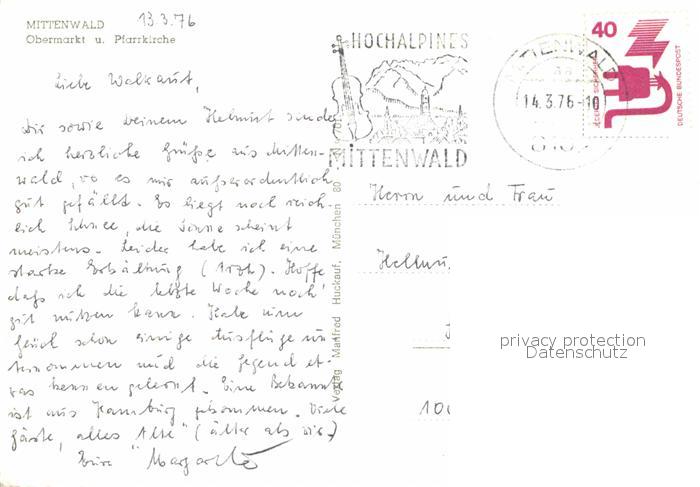 MITTENWALD 13.3.76
Obermarkt u. Pfarrkirche
Liebe Waltraut,
Dir sowie Deinem Helmut sende
ich herzliche Grüße aus Mitten-
wald, wo es mir außerordentlich
gut gefällt. Es liegt noch reich-
lich Schnee, die Sonne scheint
meistens. Leider habe ich eine
starke Erkältung (Arzt). Hoffe
daß ich die letzte Woche noch
gut nützen kann. Habe zum
Glück schon einige Ausflüge un
ternommen und die Gegend et-
was kennen gelernt. Eine Bekannte
ist aus Hamburg gekommen. Viele
Gäste, alles "Alte" (älter als wir)
Eure Margarete
Verlag Manfred Huckauf, München 80
HOCHALPINES
MITTENWALD
MITTENWALD
14.3.76-10
810
40
DEUTSCHE BUNDESPOST
Herrn und Frau
Hellmu
10
privacy protection
Datenschutz